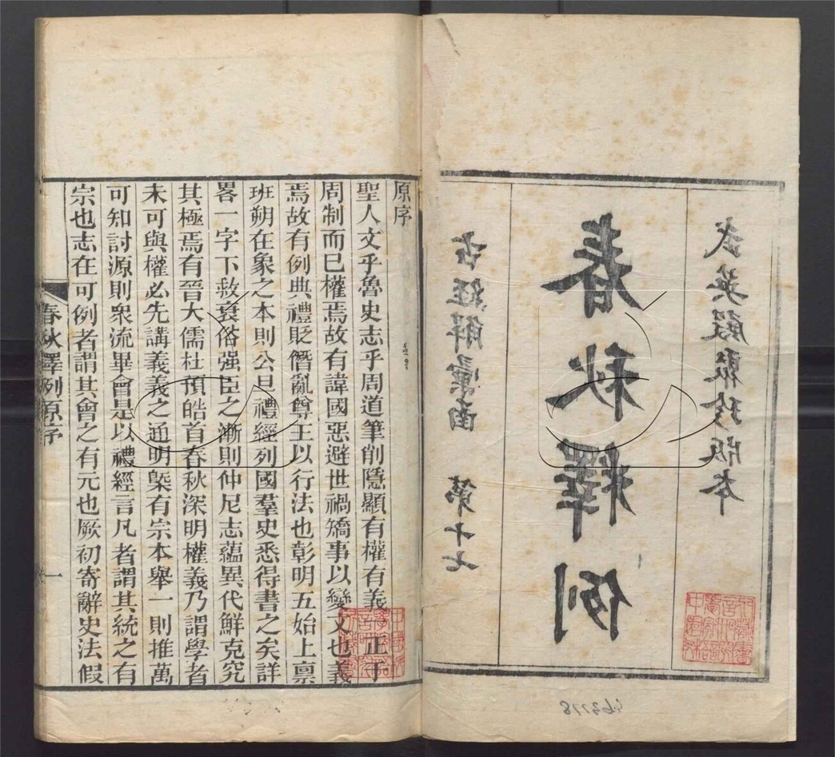 武英殿聚珍版本
春秋釋例
古經解彙函 第十七
463278
原序
聖人文乎魯史志乎周道筆削隱顯有權有義正于
周制而已權焉故有諱國惡避世禍矯事以變文也義
焉故有例典禮貶僭亂尊王以行法也彰明五始上禀
班朔在象之本則公旦禮經列國羣史悉得書之矣詳
畧一字下救衰俗强臣之漸則仲尼志蘊異代鮮克究
其極焉有晉大儒杜預皓首春秋深明權義乃謂學者
未可與權必先講義義之通明槩有宗本舉一則推萬
可知討源則衆流畢會是以禮經言凡者謂其統之有
宗也志在可例者謂其會之有元也厥初寄辭史法假
春秋釋例原序
一